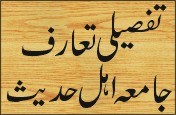 تفصیلی تعارف
جامعہ اہل حدیث